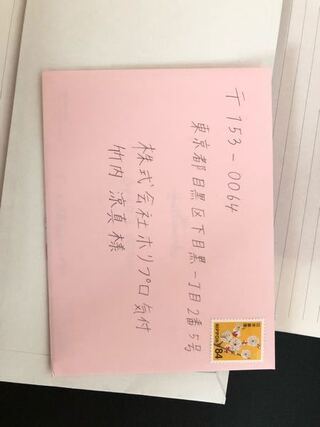 〒153-0064
東京都目黒区下目黒一丁目2番5号
株式会社ホリプロ気付
竹内 涼真 様
日本郵便
NIPPON
84